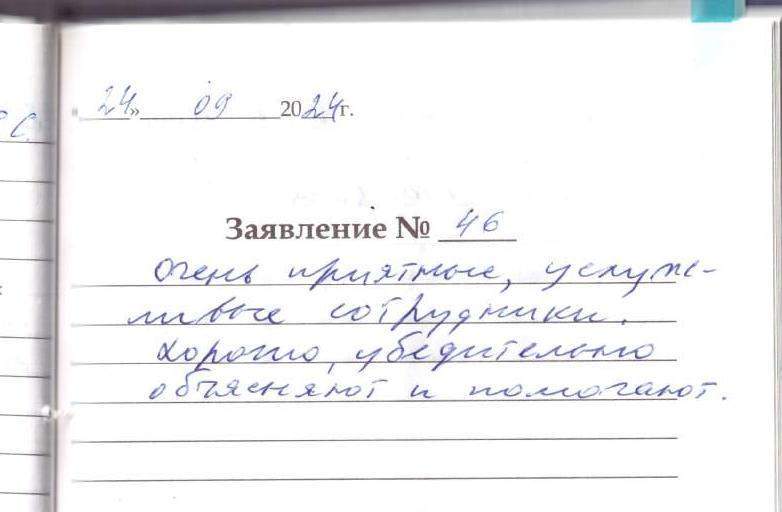 «24» 09 2024г.
Заявление № 46
Очень приятные, услуж-
ливые сотрудники.
Хорошо, убедительно
объясняют и помогают.